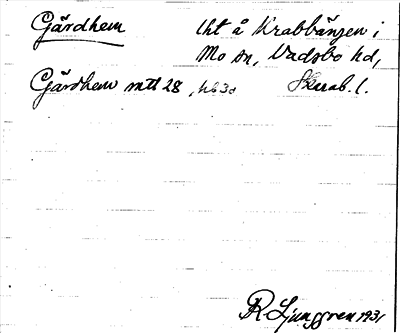 Gärdhem lht å Krabbängen i
Mo sn, Vadsbo hd,
Gärdhem mtl 28, Skarab. l.
R Ljunggren 1931